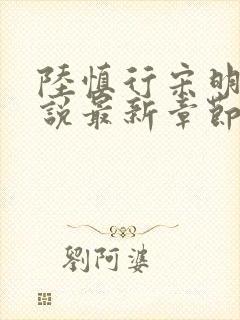 陸慎行宋明
說最新章節
劉阿婆